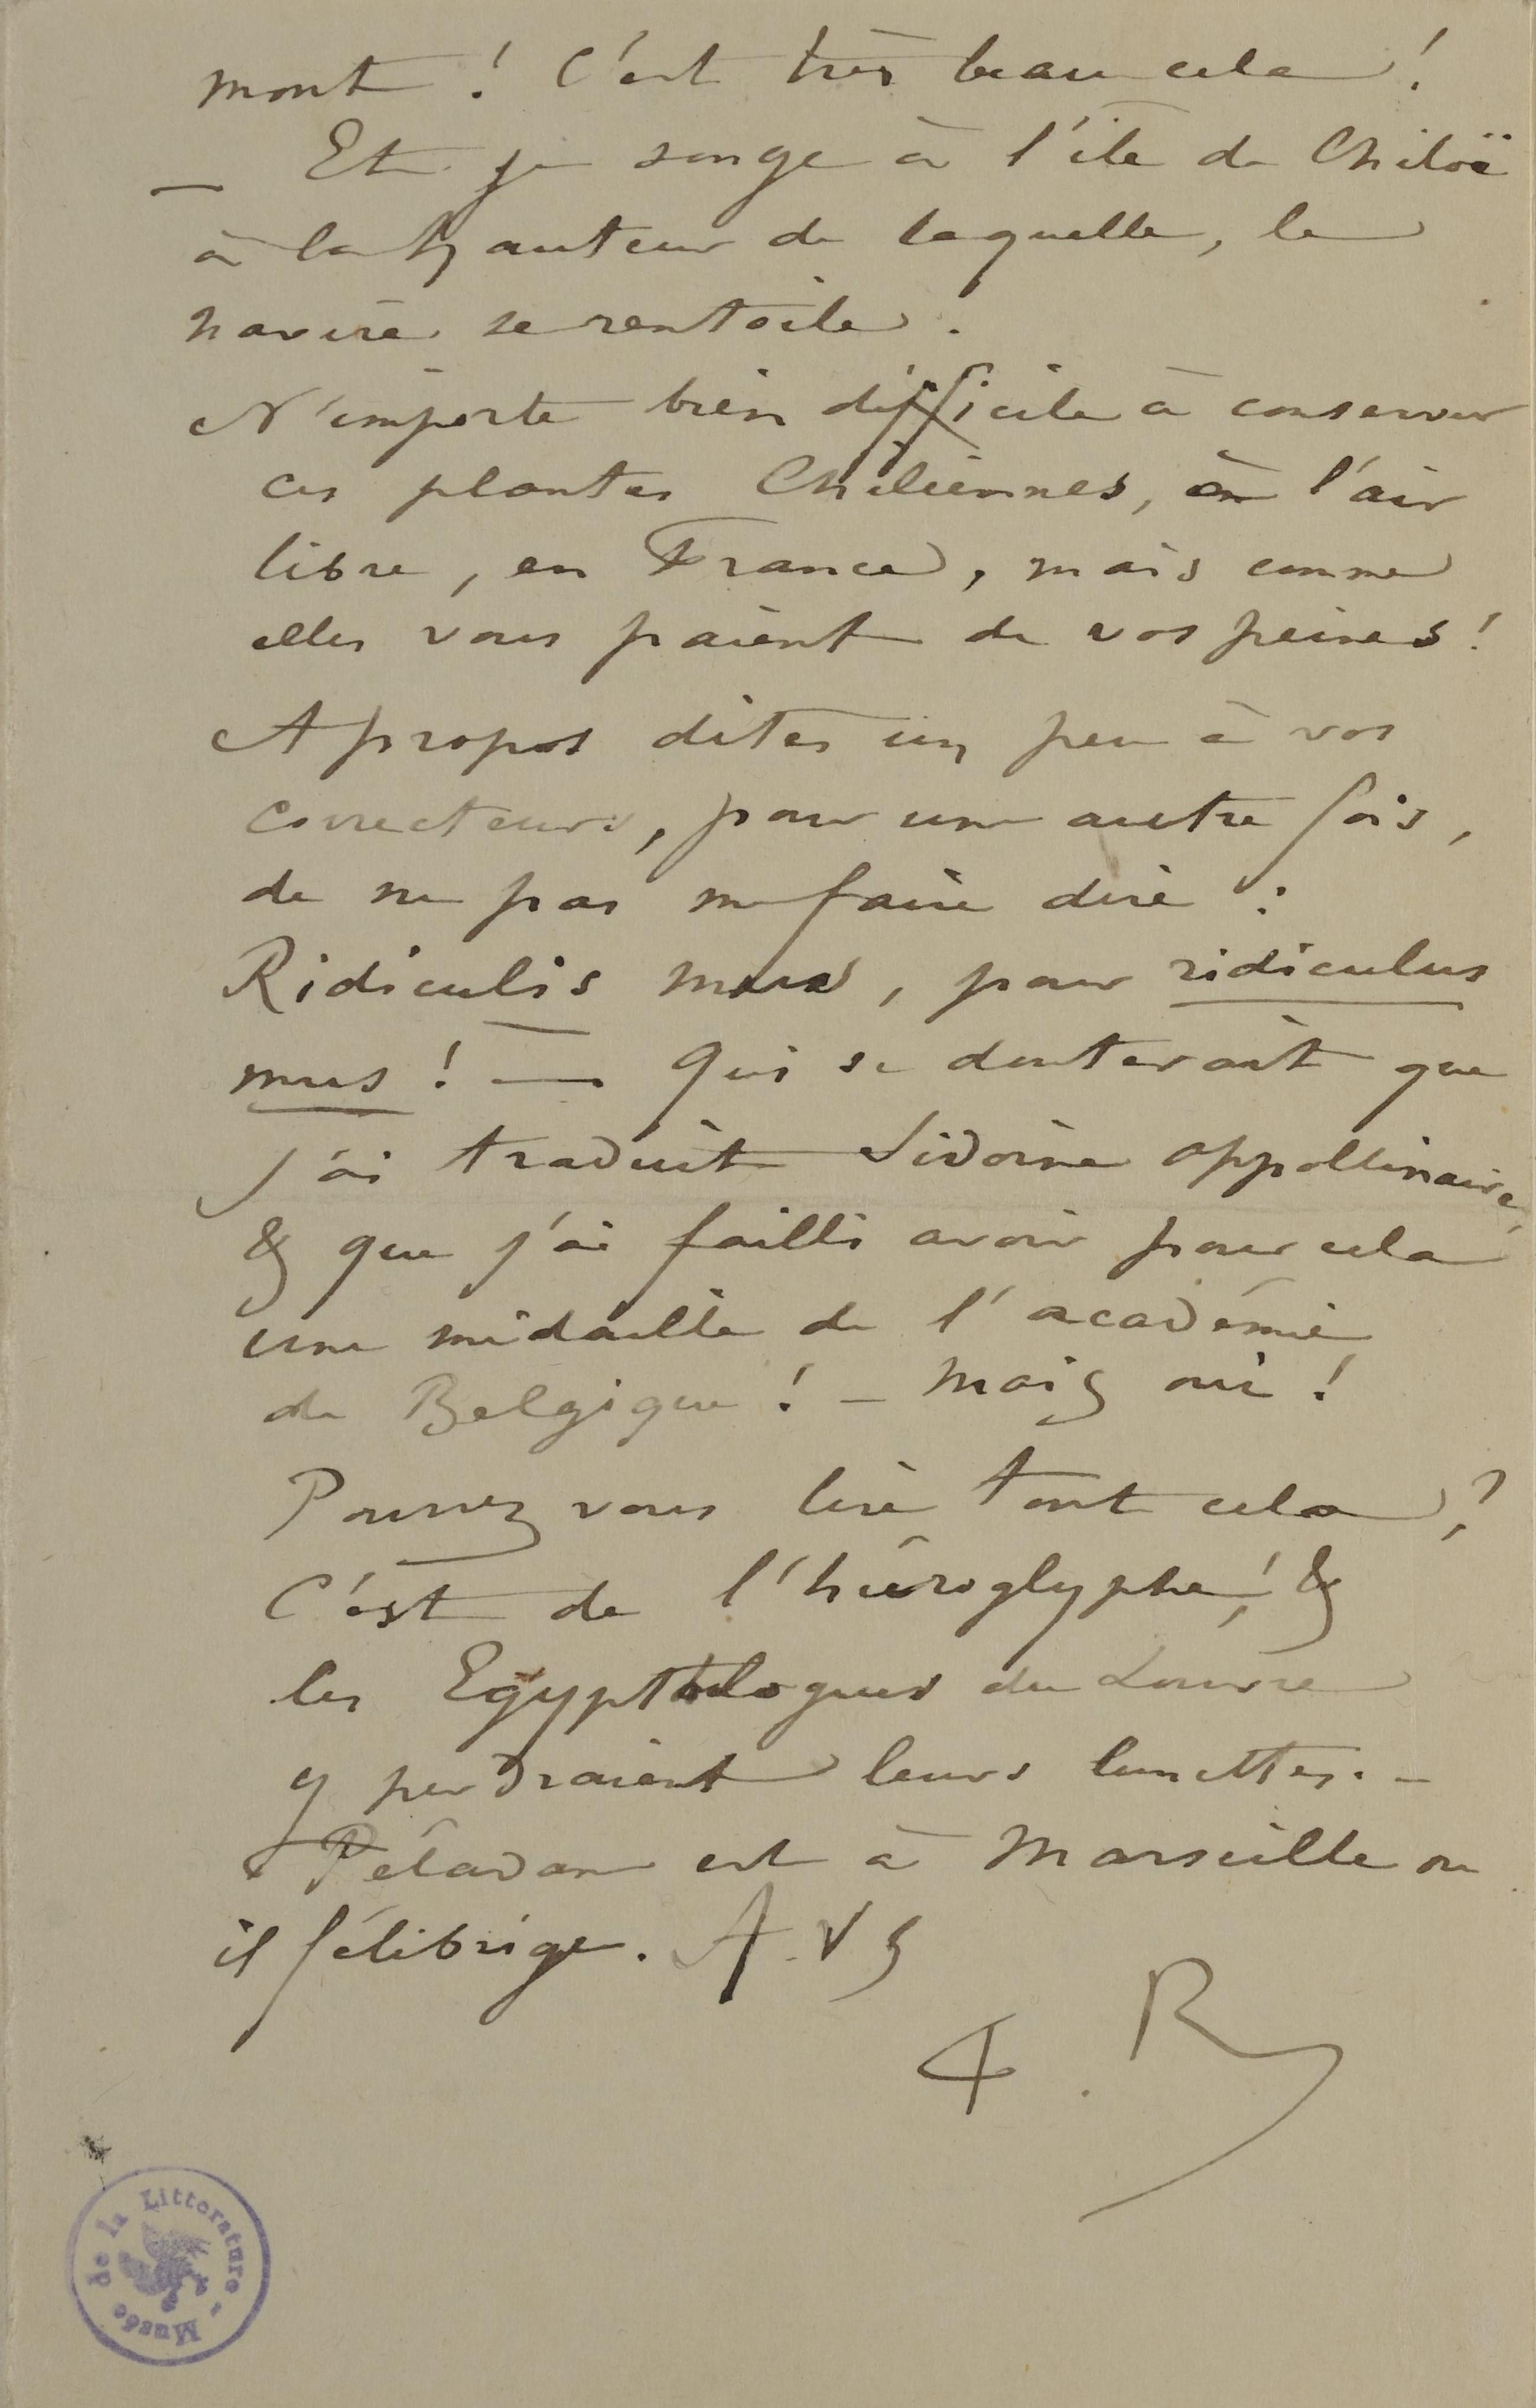 mont ! C'est très beau cela !
— Et je songe à l'île de Chiloë
à la hauteur de laquelle, le
navire se rentoile.
N'importe bien difficile à conserver
ces plantes Chiliennes, à l'air
libre, en France, mais comme
elles vous paient de vos peines !
A propos dites un peu à vos
correcteurs, pour une autre fois,
de ne pas me faire dire :
Ridiculis mus, pour ridiculus
mus ! — Qui se douterait que
j'ai traduit Sidoine appollinaire,
& que j'ai failli avoir pour cela
une médaille de l'académie
de Belgique ! — Mais oui !
Pourrez vous lire tout cela ?
C'est de l'hiéroglyphe ! &
les Egyptologues du Louvre
y perdraient leurs lunettes. —
Péladan est à Marseille ou
il félibrige. A. V
R
Musée de la Littérature -